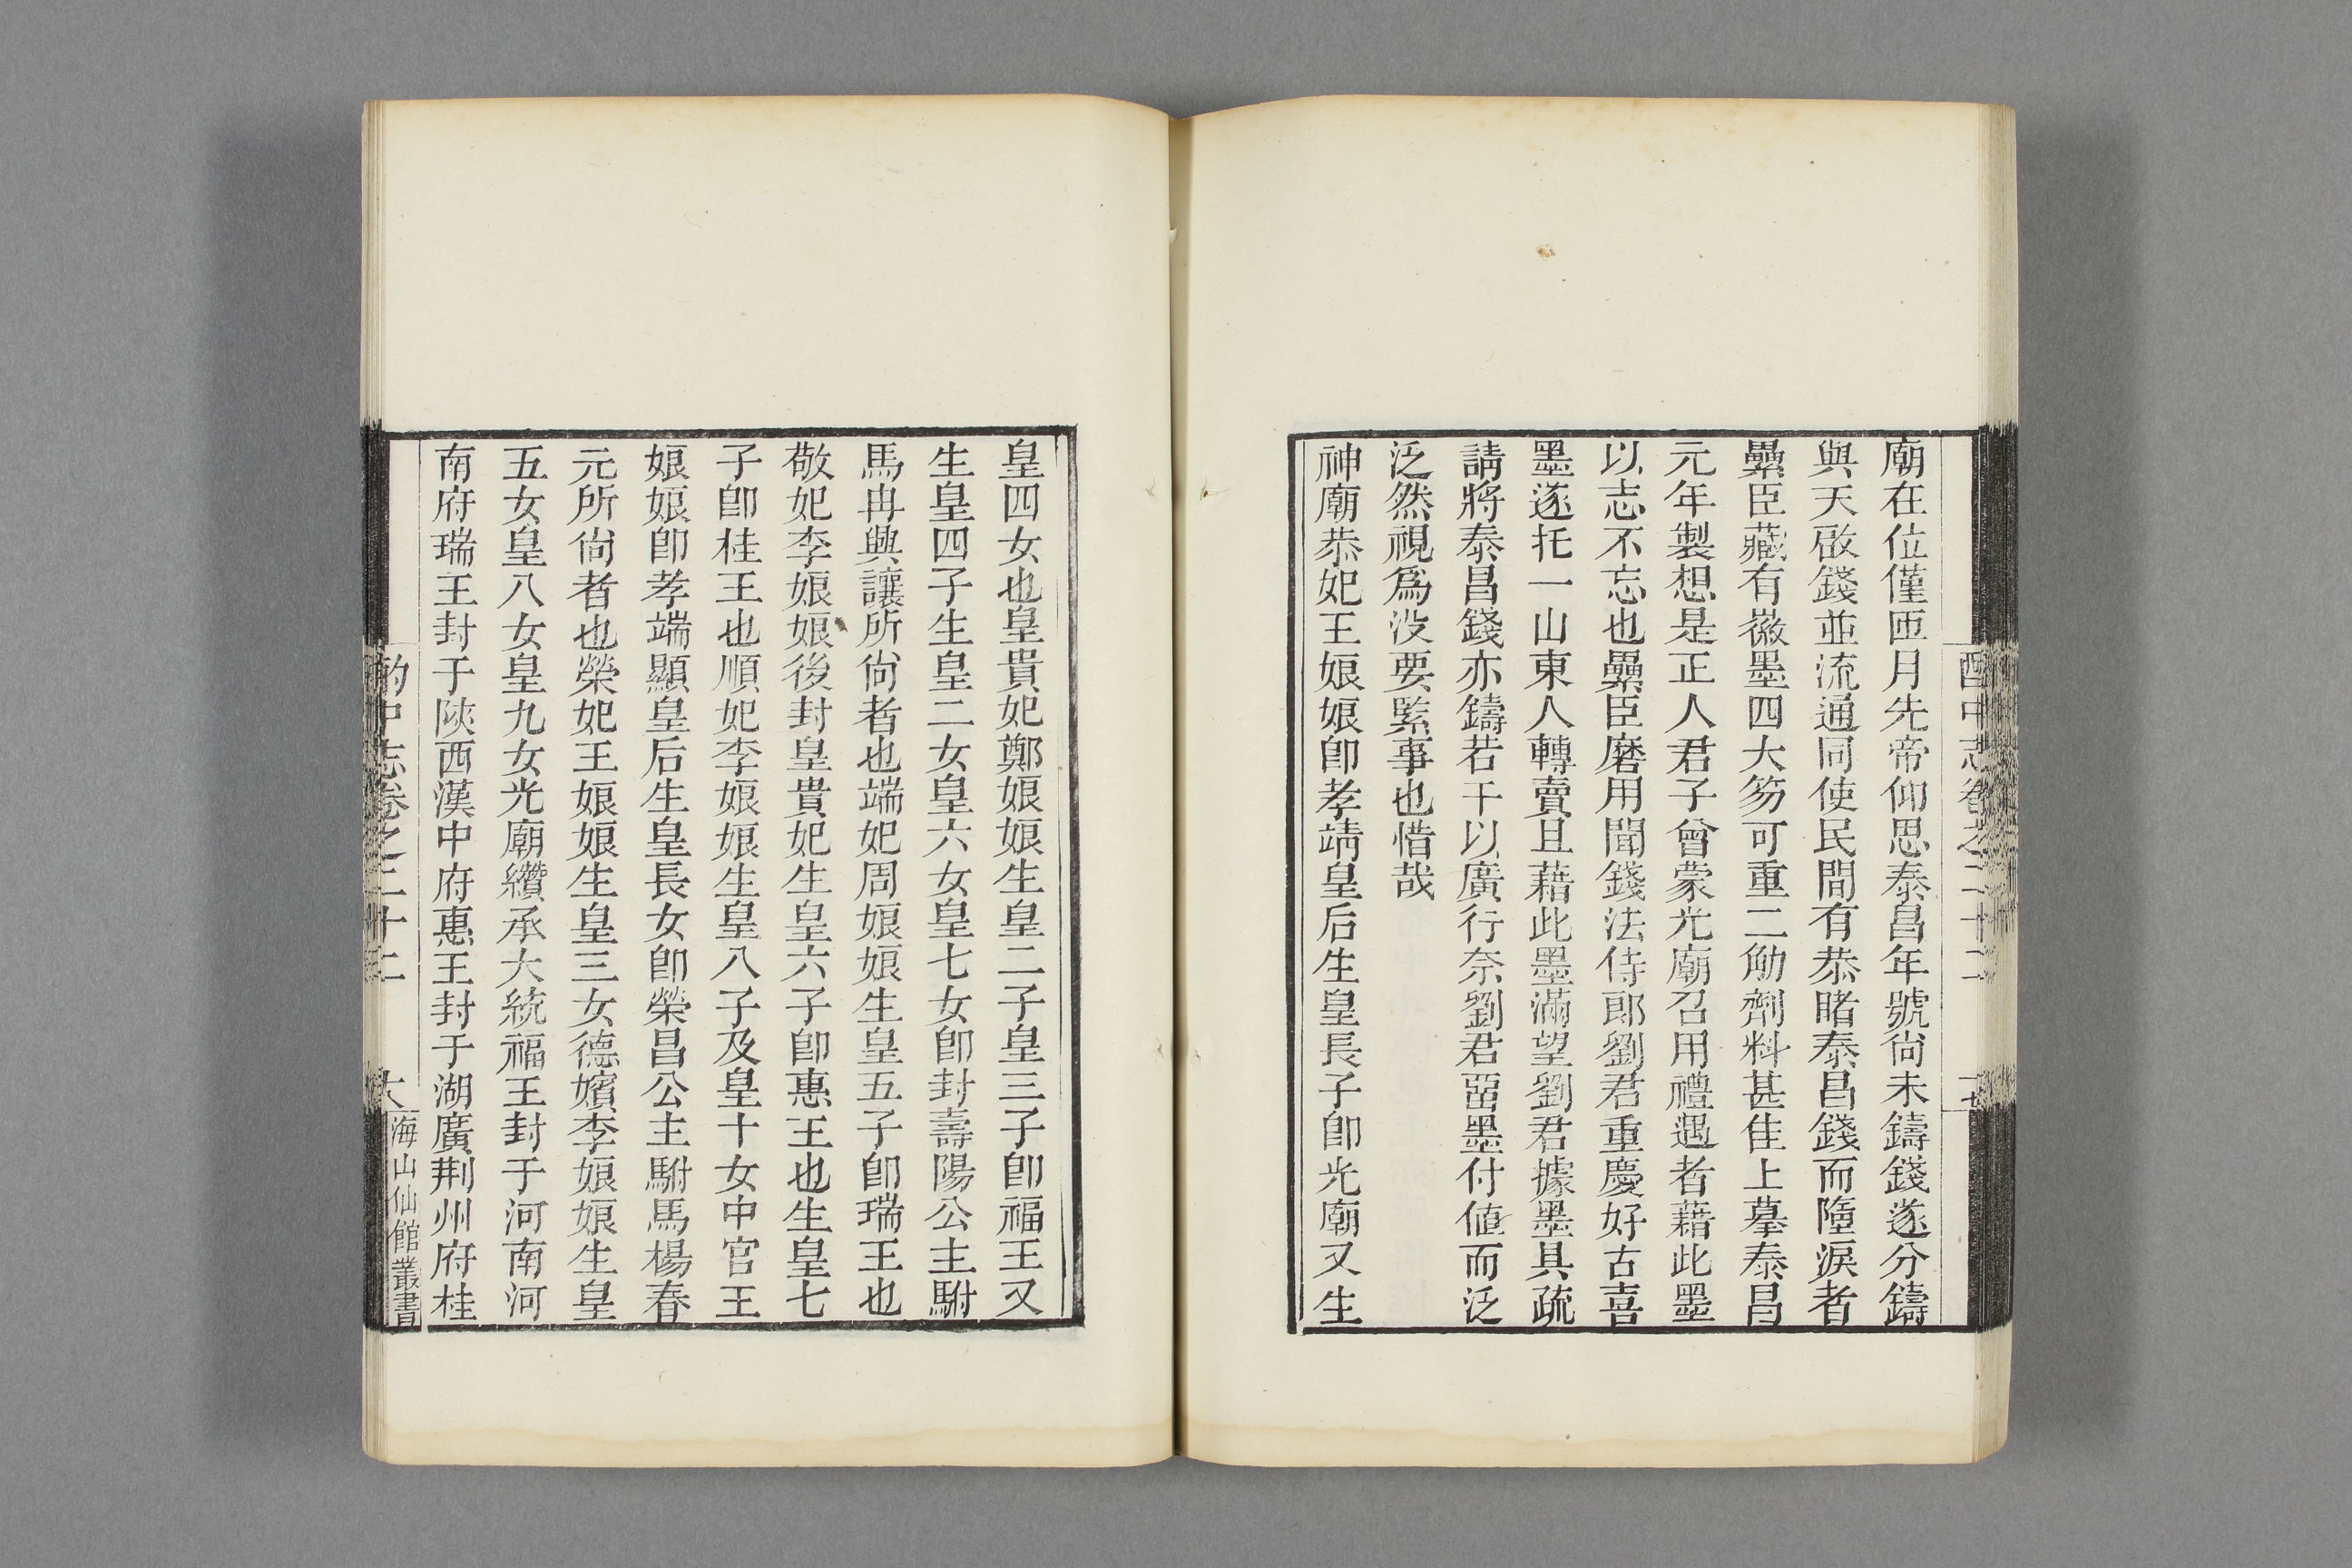 酌中志卷之二十二
廟在位僅匝月先帝仰思泰昌年號尙未鑄錢遂分鑄
與天啟錢並流通同使民間有恭睹泰昌錢而隨淚者
纍臣藏有徽墨四大笏可重二觔劑料甚佳上摹泰昌
元年製想是正人君子曾蒙光廟召用禮遇者藉此墨
以志不忘也纍臣磨用聞錢法侍郎劉君重慶好古喜
墨遂托一山東人轉賣且藉此墨滿望劉君據墨具疏
請將泰昌錢亦鑄若干以廣行奈劉君畱墨付値而泛
泛然視爲没要緊事也惜哉
神廟恭妃王娘娘卽孝靖皇后生皇長子卽光廟又生
皇四女也皇貴妃鄭娘娘生皇二子皇三子卽福王又
生皇四子生皇二女皇六女皇七女卽封壽陽公主駙
馬冉興讓所尙者也端妃周娘娘生皇五子卽瑞王也
敬妃李娘娘後封皇貴妃生皇六子卽惠王也生皇七
子卽桂王也順妃李娘娘生皇八子及皇十女中宮王
娘娘卽孝端顯皇后生皇長女卽榮昌公主駙馬楊春
元所尙者也榮妃王娘娘生皇三女德嬪李娘娘生皇
五女皇八女皇九女光廟纘承大統福王封于河南河
南府瑞王封于陝西漢中府惠王封于湖廣荆州府桂
酌中志卷之二十二
海山仙館叢書